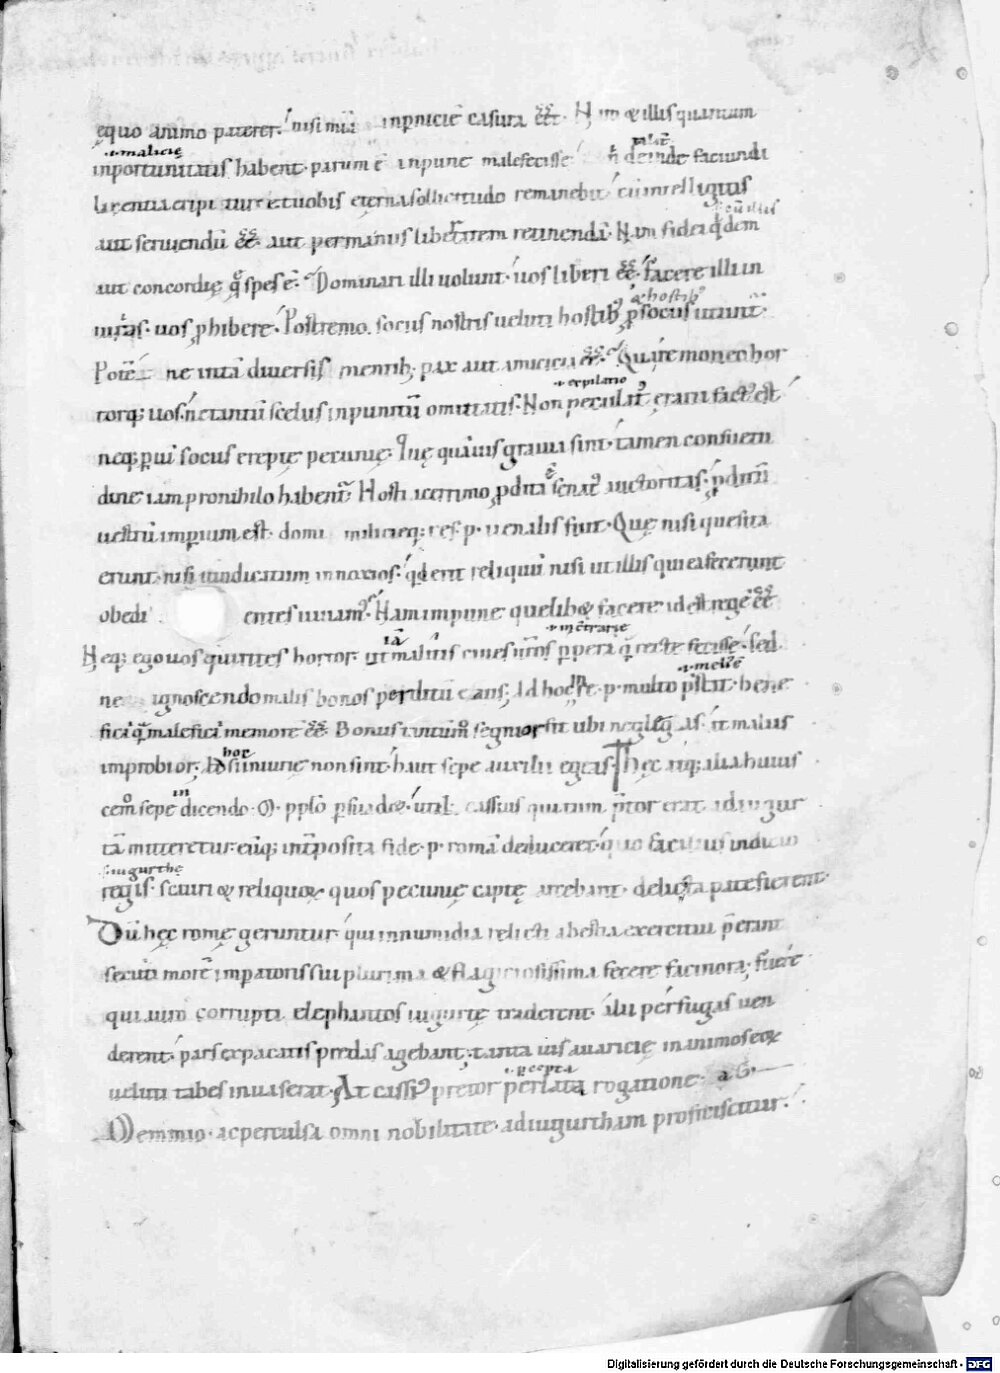 ęquo animo paterer. nisi mia inpnicie casura eēē. Nam & illis quantum
.i. malicię
inportunitatis habent. parum ē inpune malefecisse. n̄ deinde faciundi
licentia eripitur. et uobis eterna sollicitudo remanebit. cū intelligitis
cū illis
aut seruiendū eēē. aut per manus libertatem retinendā. Nam fidei qdem
aut concordię q̄ spes ē. Dominari illi uolunt. uos liberi eēē. facere illi in
& hostib;
iurias. uos phibere. Postremo. sociis nostris ueluti hostib; p sociis utunt̄.
Potē ne in tā diuersis mentib; pax aut amicicia eēē. Quare moneo hor
.i. expilatio
torq; uos. ne tantū scelus inpunitū omittatis. Non peculat; erarii fact; est
neq; p uim sociis erepię pecunię. Quę quāuis grauia sint. tamen consuetu
dine iam pro nihilo habent̄. Hosti acerrimo pdita ē senat; auctoritas. pditū
uestrū imperium est. domi miliciaeq; res. p. uenalis fuit. Quę nisi quesita
erunt. nisi uindicatum in noxios. qd erit reliquū nisi ut illis qui ea fecerunt
obedi entes uiuam;. Nam impune quelib& facere id est regē eēē
Neq; ego uos quirites hortor. ut malitis ciues uros perpera q̄ recte fecisse. sed
.i. meli; ē
ne ignoscendo malis bonos perditū eatis; Ad hoc re. p. multo pstat. bene
fici q̄ malefici memorē eēē. Bonus tantum segnior fit ubi neglegas. at malus
improbior; Ad hoc si iniurie non sint. haut sepe auxilii egeas. Hęc atq; alia huius
in
cemodi sepe dicendo. M. pplo persuadet. uti. l. cassius qui tum pretor erat ad iugur
tā mitteretur. eūq; intposita fide. p. romā deduceret. quo facilius indicio
s. iugurthę
regis. scauri & reliquorum quos pecunię captę arcebant. delicta patefierent.
Dū hęc romę geruntur. qui in numidia relicti a bestia exercitui perant
secuti morē imperatoris sui plurima & flagiciosissima fecere facinora; fuere
qui auro corrupti elephantos iugurtę traderent. alii perfugas uen
derent. pars ex pacatis predas agebant; tanta uis auaricię in animos eorum
.i. recepta
ueluti tabes inuaserat. At cassi; pretor perlata rogatione. a. G.
Memmio. ac perculsa omni nobilitate. ad iugurtham proficiscitur.
Digitalisierung gefördert durch die Deutsche Forschungsgemeinschaft - DFG